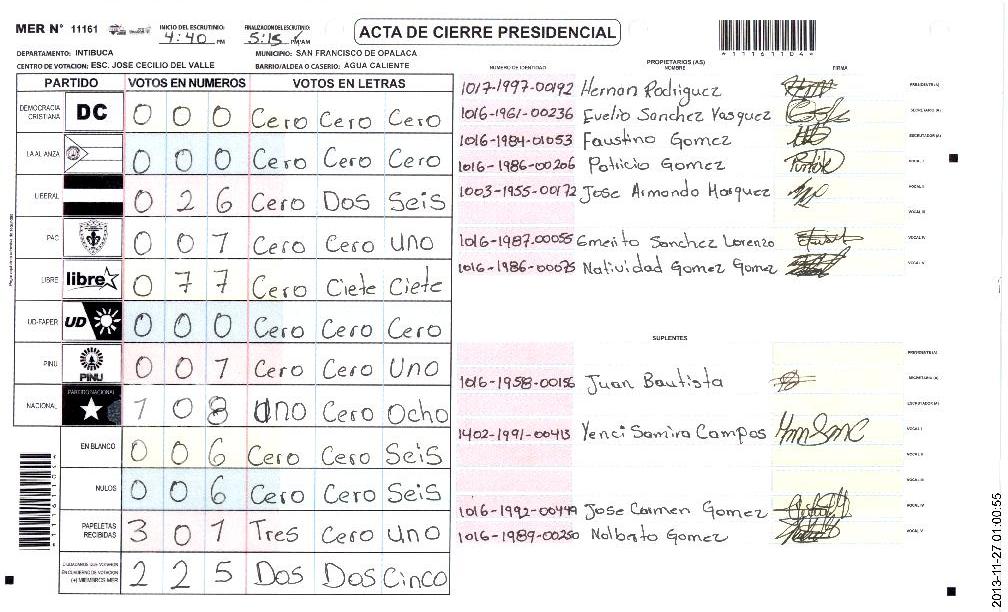 MER N° 11161 INICIO DEL ESCRUTINIO: 4:40 PM FINALIZACION DEL ESCRUTINIO: 5:15 PM/AM ACTA DE CIERRE PRESIDENCIAL
DEPARTAMENTO: INTIBUCA MUNICIPIO: SAN FRANCISCO DE OPALACA
CENTRO DE VOTACION: ESC. JOSE CECILIO DEL VALLE BARRIO/ALDEA O CASERIO: AGUA CALIENTE
1 1 1 6 1 1 0 4 4
PARTIDO VOTOS EN NUMEROS VOTOS EN LETRAS
DEMOCRACIA CRISTIANA DC 0 0 0 Cero Cero Cero
LA ALIANZA 0 0 0 Cero Cero Cero
LIBERAL 0 2 6 Cero Dos Seis
PAC 0 0 1 Cero Cero Uno
LIBRE libre 0 7 7 Cero Ciete Ciete
UD-FAPER UD 0 0 0 Cero Cero Cero
PINU PINU 0 0 1 Cero Cero Uno
NACIONAL PARTIDO NACIONAL 1 0 8 Uno Cero Ocho
EN BLANCO 0 0 6 Cero Cero Seis
NULOS 0 0 6 Cero Cero Seis
PAPELETAS RECIBIDAS 3 0 1 Tres Cero Uno
CIUDADANOS QUE VOTARON EN CUADERNO DE VOTACION (+) MIEMBROS MER 2 2 5 Dos Dos Cinco
PROPIETARIOS (AS)
NUMERO DE IDENTIDAD NOMBRE FIRMA
1017-1997-00192 Hernan Rodriguez PRESIDENTE (A)
1016-1961-00236 Evelio Sanchez Vasquez SECRETARIO (A)
1016-1984-01053 Faustino Gomez ESCRUTADOR (A)
1016-1986-00206 Patricio Gomez VOCAL I
1003-1955-00172 Jose Armando Marquez VOCAL II
VOCAL III
1016-1987-00055 Emerito Sanchez Lorenzo VOCAL IV
1016-1986-00075 Natividad Gomez Gomez VOCAL V
SUPLENTES
PRESIDENTE (A)
1016-1958-00156 Juan Bautista SECRETARIO (A)
ESCRUTADOR (A)
1402-1991-00413 Yenci Samira Campos VOCAL I
VOCAL II
VOCAL III
1016-1992-00449 Jose Carmen Gomez VOCAL IV
1016-1989-00250 Nolberto Gomez VOCAL V
2013-11-27 01:00:55